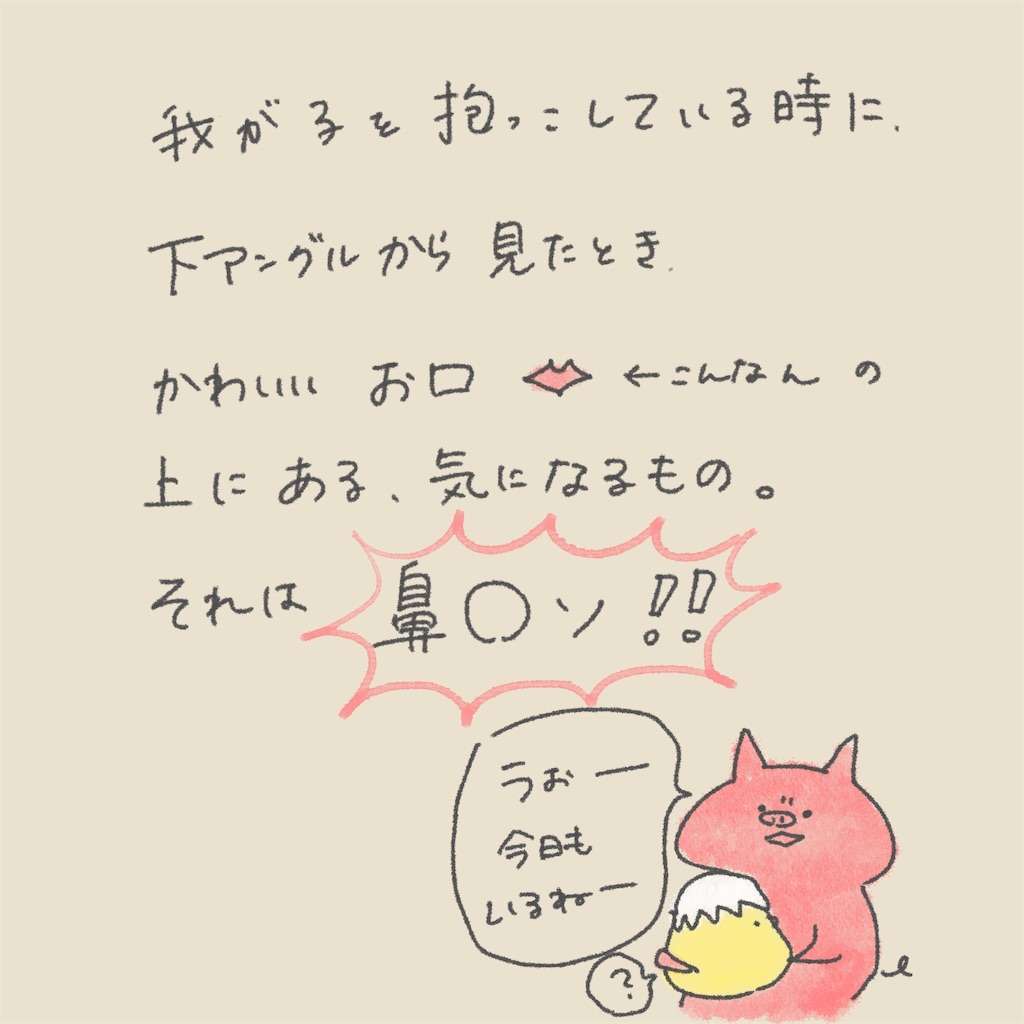 我が子を抱っこしている時に.
下アングルから見たとき.
かわいい お口 ←こんなんの
上にある、気になるもの。
それは 鼻〇ソ!!
うおー
今日も
いるねー
?